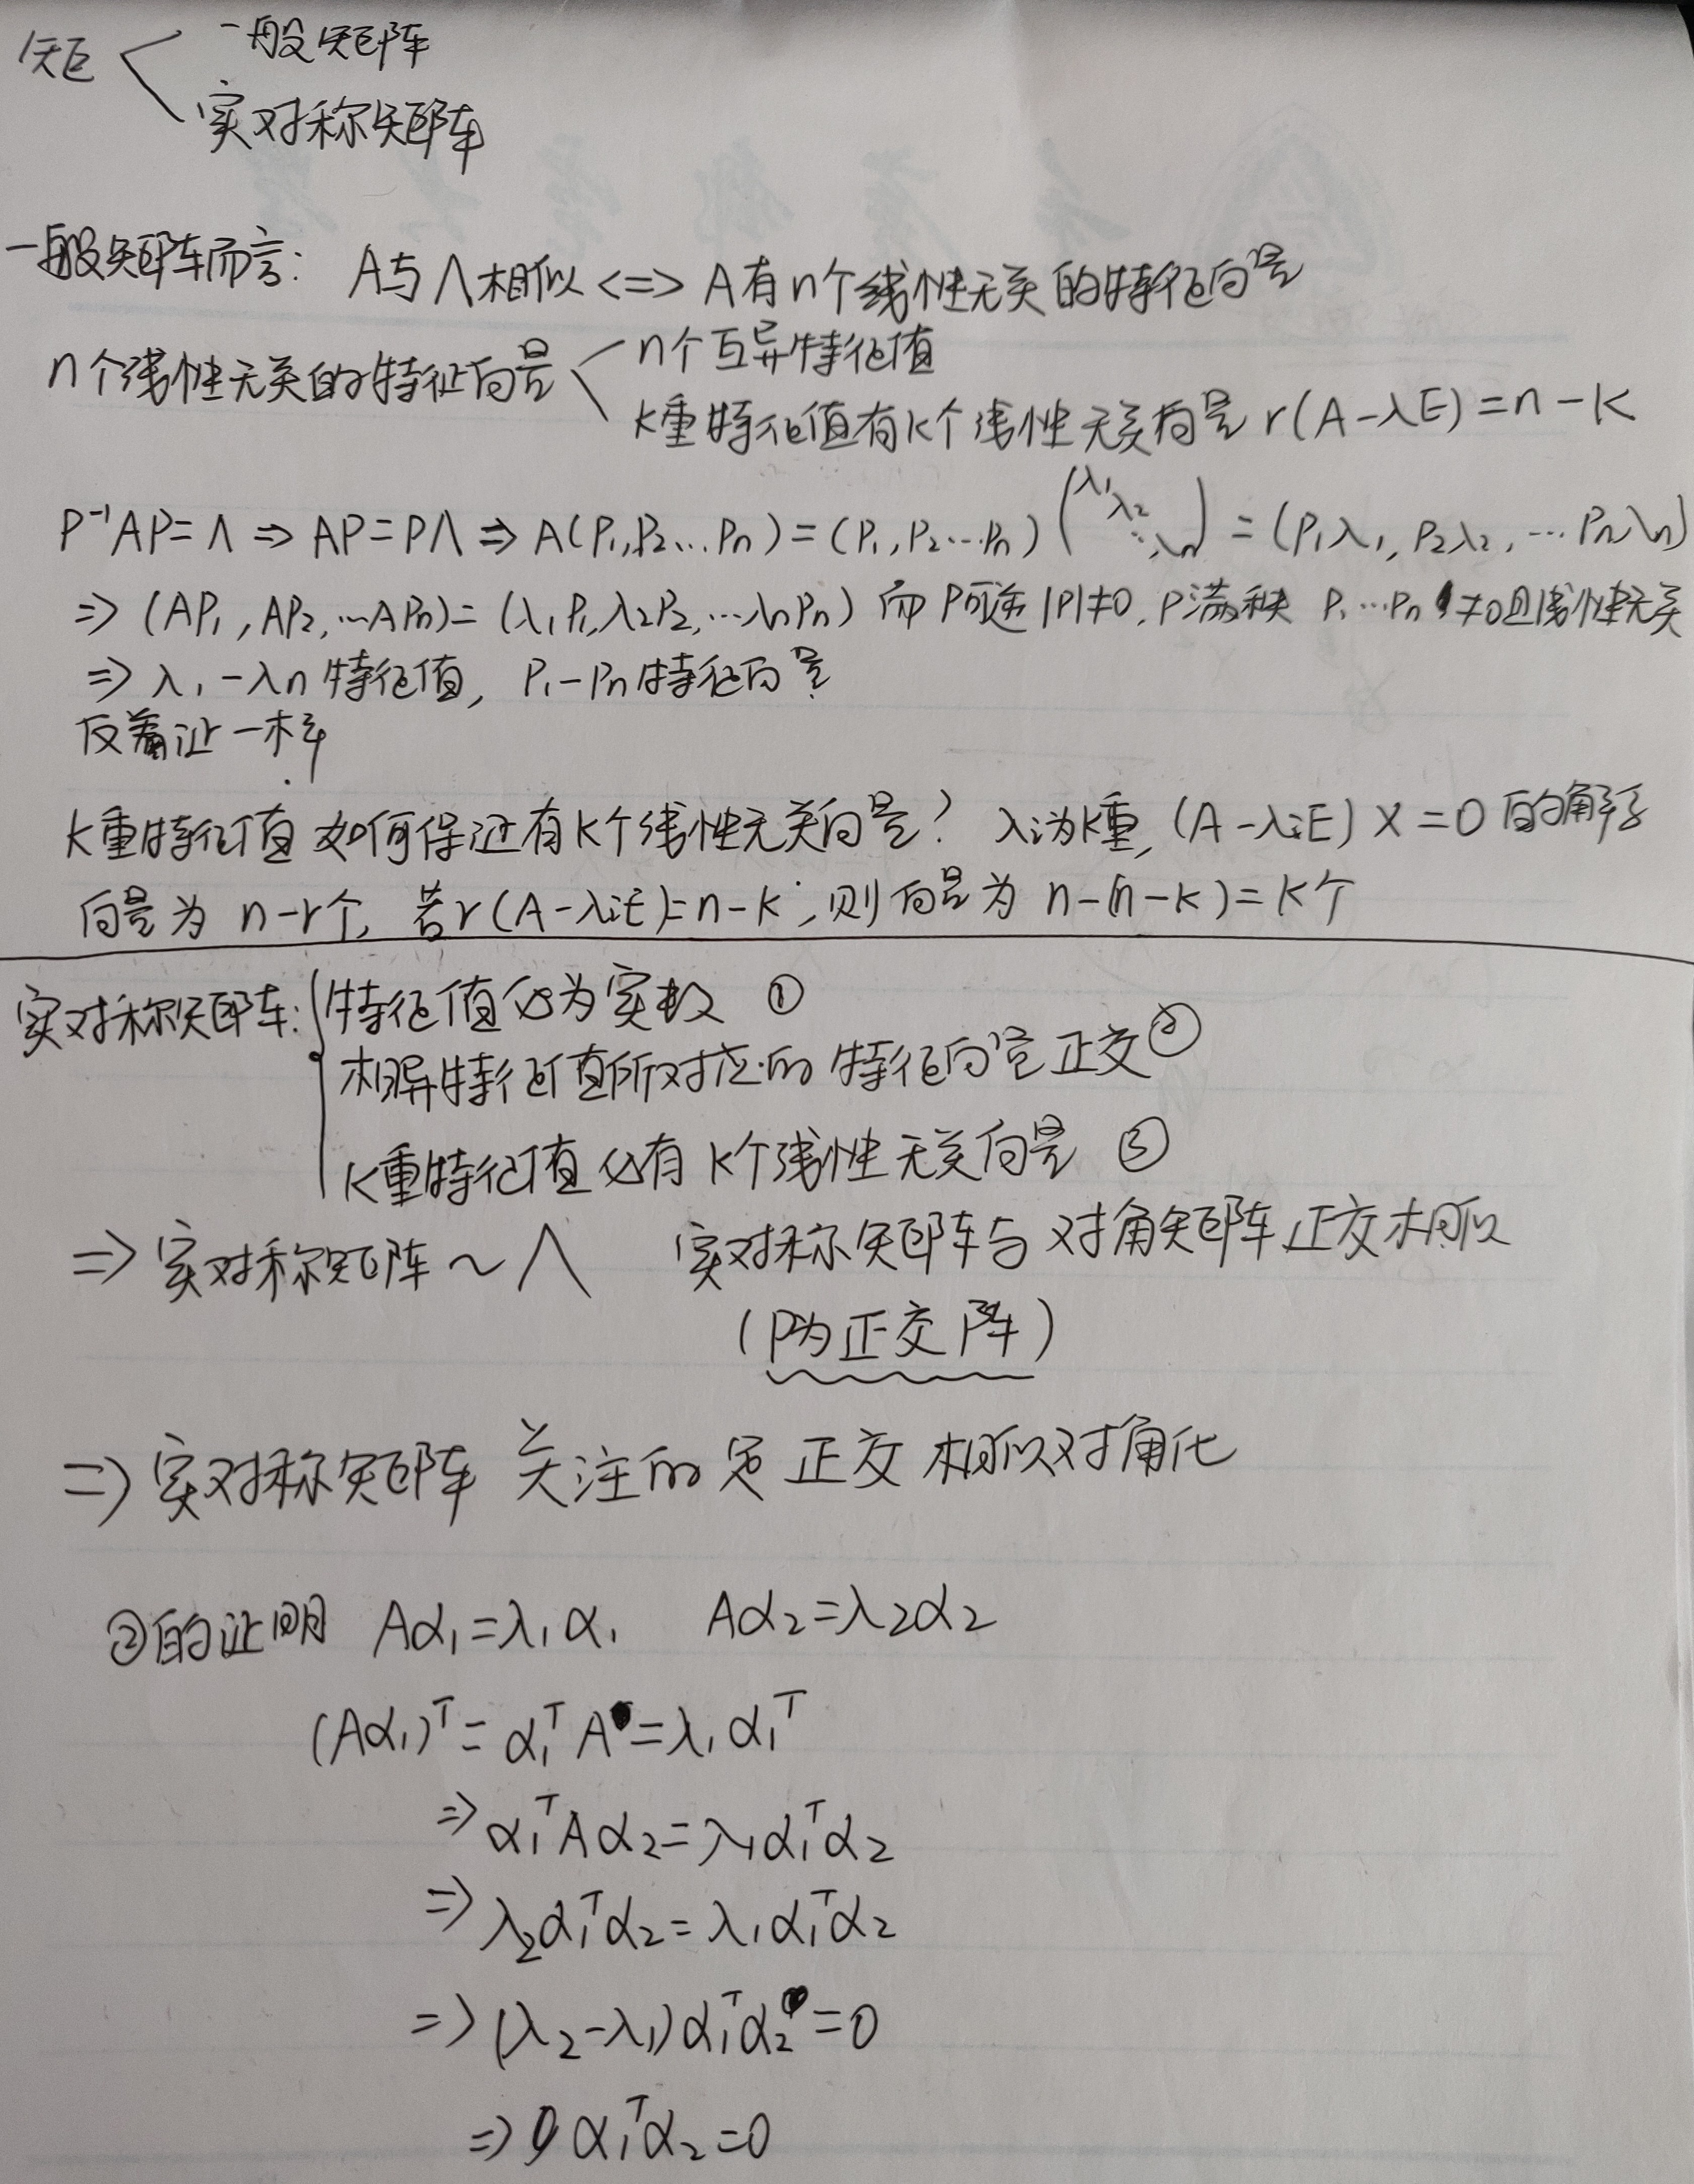 矩 一般矩阵
实对称矩阵
一般矩阵而言: A与Λ相似 <=> A有n个线性无关的特征向量
n个线性无关的特征向量 n个互异特征值
k重特征值有k个线性无关向量 r(A-λE)=n-k
P⁻¹AP=Λ ⇒ AP=PΛ ⇒ A(P₁,P₂…Pn)=(P₁,P₂…Pn)(λ₁ λ₂ ⋱ λn)=(P₁λ₁,P₂λ₂,…Pnλn)
⇒ (AP₁,AP₂,…APn)=(λ₁P₁,λ₂P₂,…λnPn) 而P可逆 |P|≠0, P满秩 P₁…Pn ≠0且线性无关
⇒ λ₁-λn 特征值, P₁-Pn特征向量
反着证一样
k重特征值如何保证有k个线性无关向量? λi为k重, (A-λiE)X=0的解
向量为 n-r个, 若r(A-λiE)=n-k, 则向量为 n-(n-k)=k个
实对称矩阵: 特征值必为实数 ①
相异特征值所对应的特征向量正交 ②
k重特征值必有k个线性无关向量 ③
⇒ 实对称矩阵~Λ 实对称矩阵与对角矩阵正交相似
(P为正交阵)
⇒ 实对称矩阵 关注的是 正交相似对角化
②的证明 Aα₁=λ₁α₁ Aα₂=λ₂α₂
(Aα₁)ᵀ=α₁ᵀA=λ₁α₁ᵀ
⇒ α₁ᵀAα₂=λ₁α₁ᵀα₂
⇒ λ₂α₁ᵀα₂=λ₁α₁ᵀα₂
⇒ (λ₂-λ₁)α₁ᵀα₂=0
⇒ α₁ᵀα₂=0